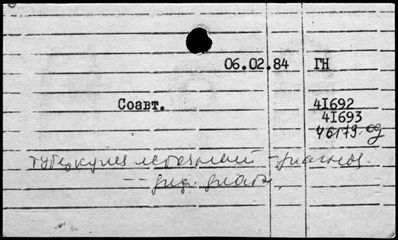 06.02.84 ГН
Соавт. 41692
41693
46179.
туберкулез легочный - диагноз.
-- диф. диагн.